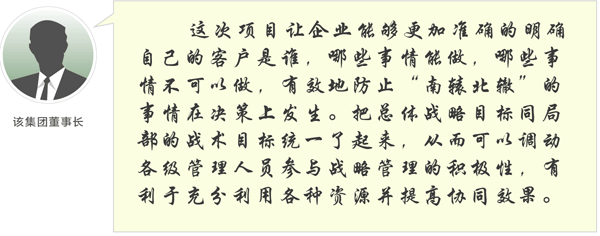 这次项目让企业能够更加准确的明确
自己的客户是谁，哪些事情能做，哪些事
情不可以做，有效地防止“南辕北辙”的
事情在决策上发生。把总体战略目标同局
部的战术目标统一了起来，从而可以调动
各级管理人员参与战略管理的积极性，有
利于充分利用各种资源并提高协同效果。
该集团董事长